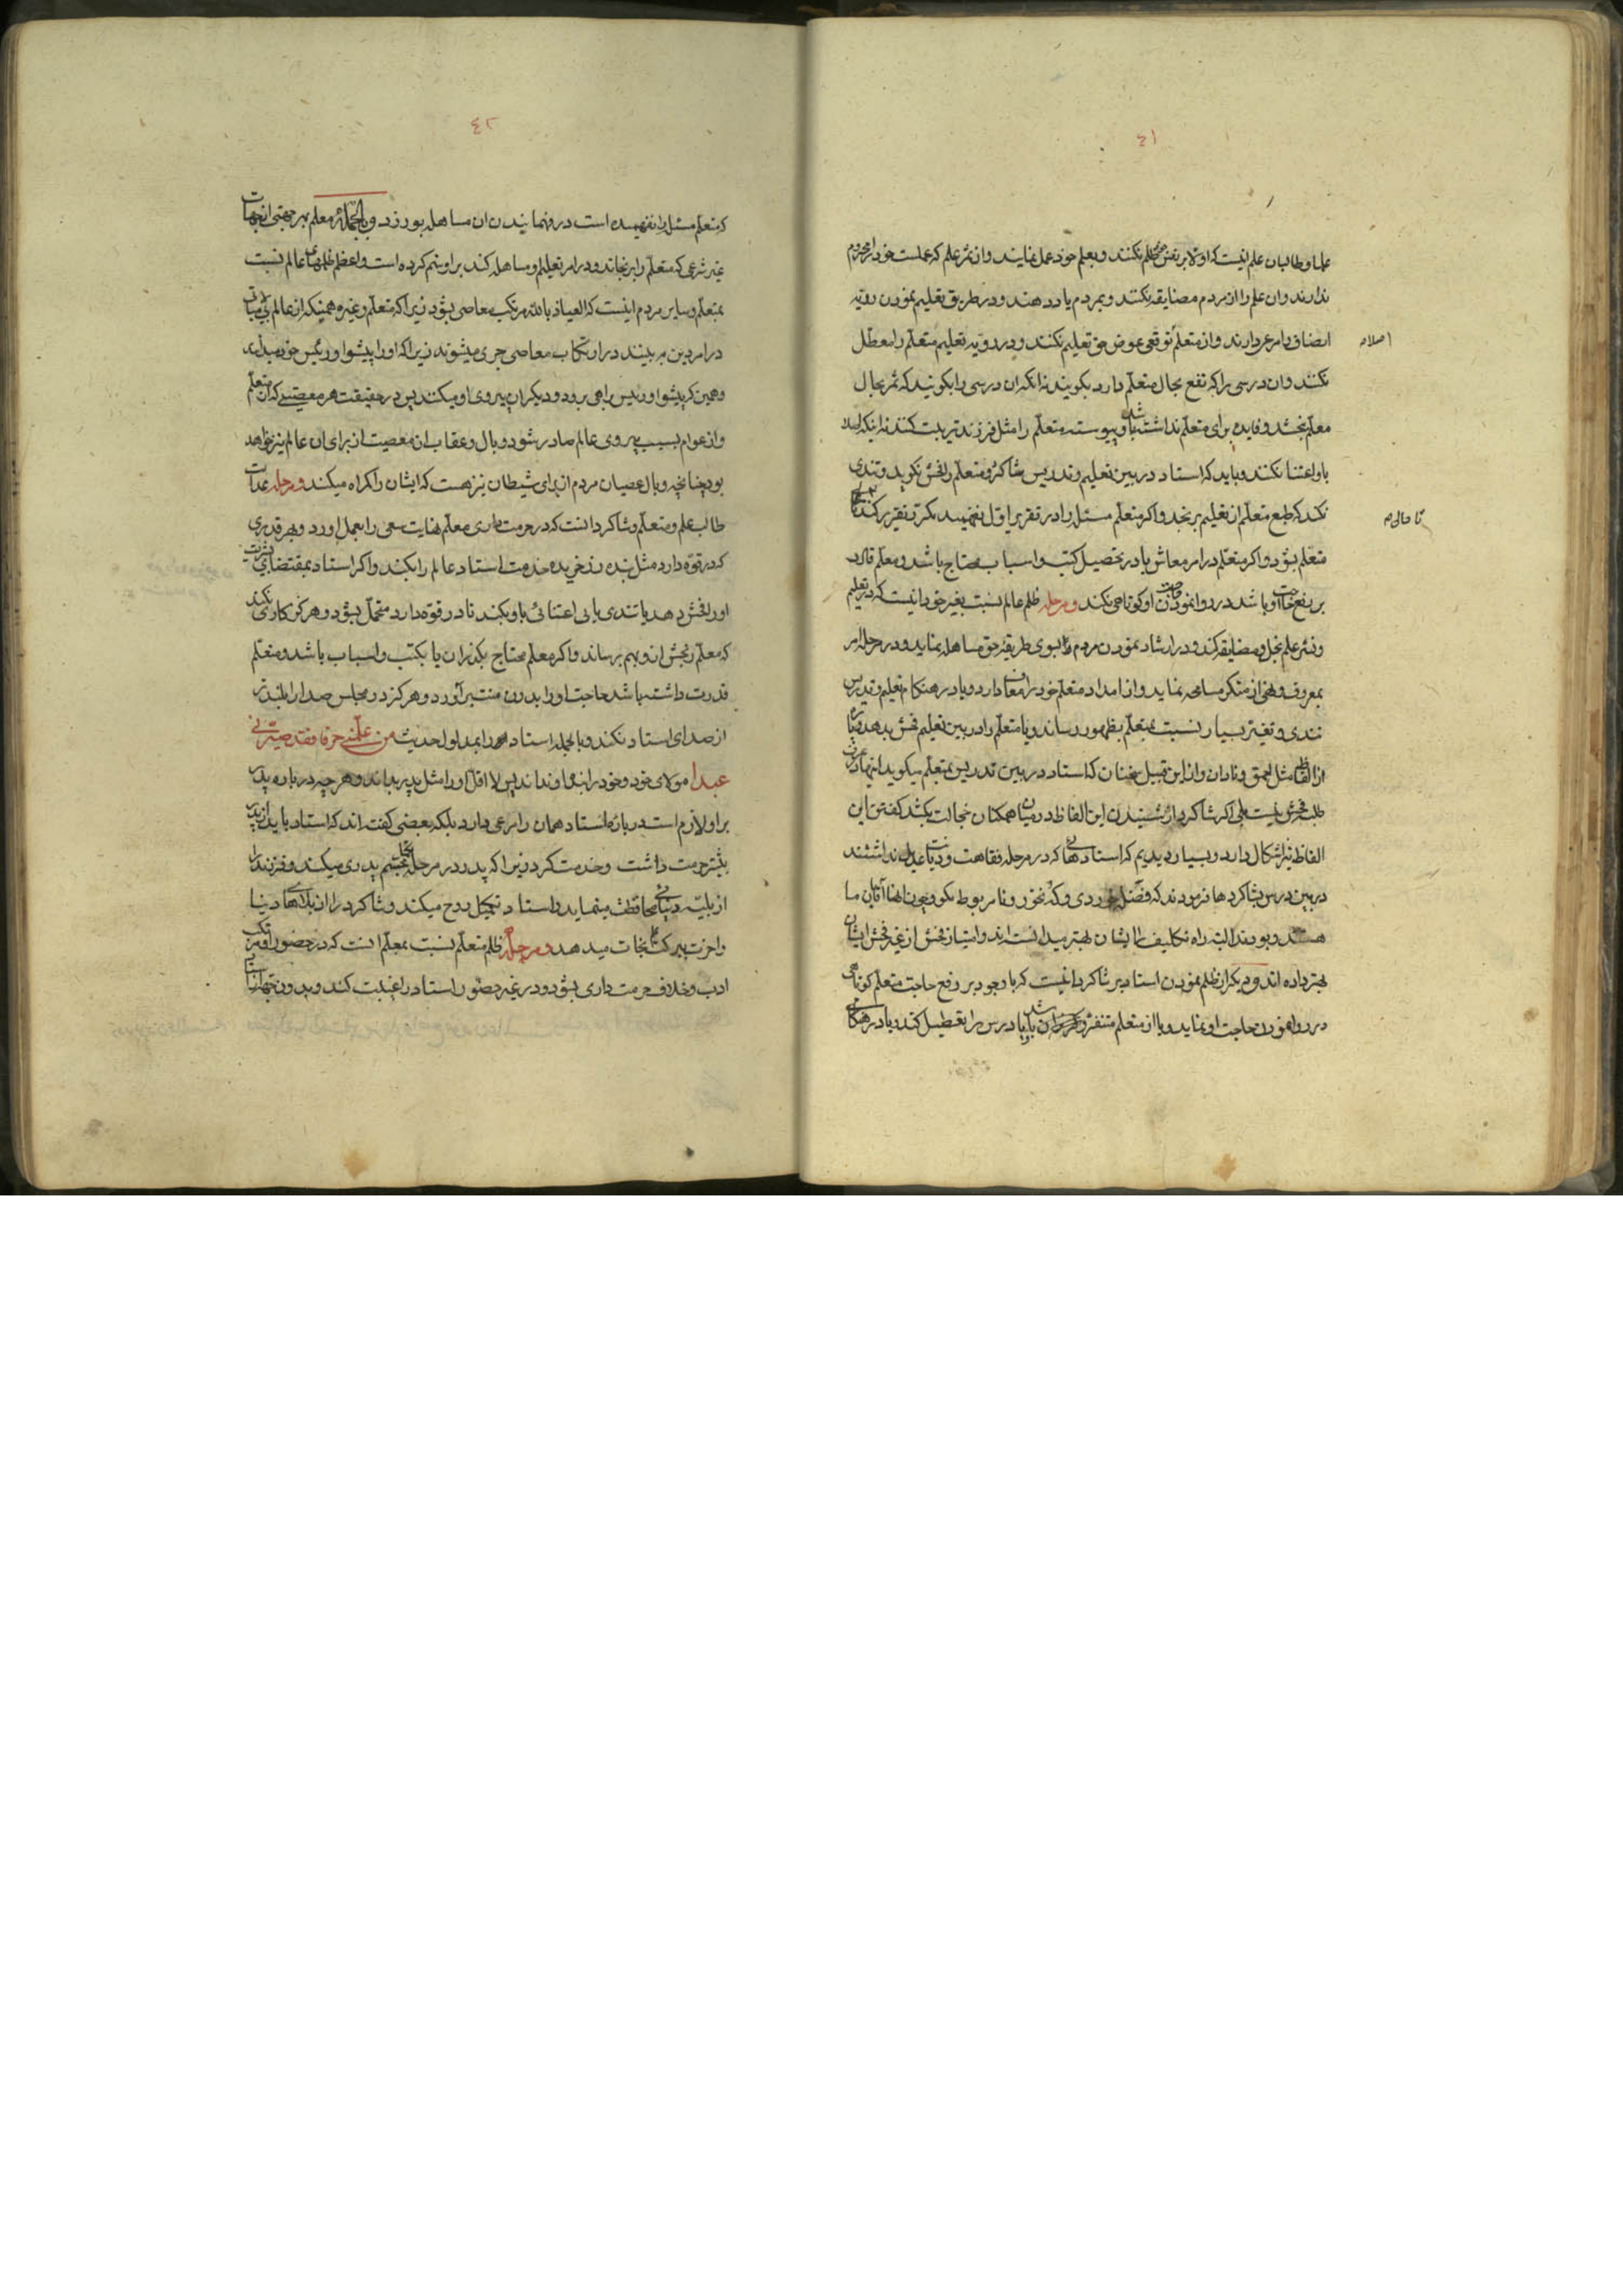 ٤١
علما و طالبان علم اینست که اولا بر نفس خود ظلم نکنند و بعلم خود عمل نمایند و از ثمر علم که عملست خود را محروم
ندارند و ان علم را از مردم مضایقه نکنند و بمردم یاد دهند و در طریق تعلیم نمودن رویّه
انصاف را مرعی دارند و از متعلّم توقعی عوض حق تعلیم نکنند و در رویّه تعلیم متعلّم را معطّل
نکنند و ان درسی را که نفع بحال متعلّم دارد بکویند نه انکه ان درسی را بکویند که ثمر بحال
معلّم بخشد و فایده برای متعلّم نداشته باشد و پیوسته متعلّم را مثل فرزند تربیت کنند نه اینکه اصلا
باو اعتنا نکنند و باید که استاد در بین تعلیم و تدریس شاکرد و متعلّم را فحش نکوید و تندی
نکند که طبع متعلّم از تعلیم برنجد و اکر متعلّم مسئله را در تقریر اوّل نفهمید مکرّر تقریر کند تا
متعلّم بشود و اکر متعلّم در امر معاش یا در تحصیل کتب و اسباب محتاج باشد و معلّم قادر
بر رفع حاجت او باشد در روا نمودن حاجت او کوتاهی نکند و مرحله ظلم عالم نسبت بغیر خود انیست که در تعلیم
و نشر علم بخل و مضایقه کند و در ارشاد نمودن مردم بسوی طریقه حق مساهله نماید و در مرحله امر
بمعروف و نهی از منکر مسامحه نماید و از امداد متعلّم خود را معاف دارد و یا در هنکام تعلیم و تدریس
تندی و تغیّر بسیار نسبت بمتعلّم بظهور رساند و یا متعلّم را در بین تعلیم فحش بدهد و یا
از الفاظ مثل احمق و نادان و از این قبیل سخنان که استاد در بین تدریس بمتعلّم میکوید اینها در عرف
طلبه فحش نیست بلی اکر شاکرد از شنیدن این الفاظ در میان همکنان خجالت بکشد کفتن این
الفاظ نیز اشکال دارد و بسیار دیدیم که استادهائی که در مرحله فقاهت و دیانت عدیل نداشتند
در بین درس بشاکردها فرمودند که فضله خوردی و که نخور و نامربوط مکو و چون انها آقایان ما
هستند و بودند البته راه تکلیف را ایشان بهتر میدانسته اند و امتیاز فحش از غیر فحش ایشان
بهتر داده اند و دیکر از ظلم نمودن استاد بر شاکرد انیست که با وجود بر رفع حاجت متعلّم کوتاهی
در روا نمودن حاجت او نماید و یا از متعلّم متنفّر و باشد و یا درس را تعطیل کند و یا در هنکامی
اصلا م
تا حالی م
٤٢
که متعلّم مسئله را نفهمیده است در فهمانیدن ان مساهله بورزد و بالجمله اکر معلم بهر جهتی از جهات
غیر شرعی که متعلّم را برنجاند و در امر تعلیم او مساهله کند بر او ستم کرده است و اعظم ظلمهای عالم نسبت
بمتعلّم و سایر مردم اینست که العیاذ بالله مرتکب معاصی بشود زیرا که متعلّم و غیره همینکه از عالم بی مبالاتی
در امر دین به بینند در ارتکاب معاصی جری میشوند زیرا که او را پیشوا و رئیس خود میدانند
و همین که پیشوا و رئیس براهی برود دیکران پیروی او میکنند پس در حقیقت هر معصیتی که از متعلّم
و از عوام بسبب پیروی عالم صادر شود وبال و عقاب ان معصیت از برای ان عالم نیز خواهد
بود چنانچه وبال عصیان مردم از برای شیطان نیز هست که ایشان را کراه میکند و مرحله عدالت
طالب علم و متعلّم و شاکرد انست که در حرمت داری معلّم نهایت سعی را بعمل اورد و بهر قدری
که در قوه دارد مثل بنده زرخریده خدمت استاد عالم را بکند و اکر استاد بمقتضای بشریّت
او را فحش دهد یا تندی یا بی اعتنائی باو بکند تا در قوّه دارد متحمّل بشود و هرکز کاری نکند
که معلّم رنجش از او بهم رساند و اکر معلّم محتاج بکذران یا بکتب و اسباب باشد و متعلّم
قدرت داشته باشد حاجت او را بدون منّت برآورد و هرکز در مجلس صدا را بلندتر
از صدای استاد نکند و بالجمله استاد را بمدلول حدیث من علّمنی حرفا فقد صیّرنی
عبدا مولای خود و خود را بنده او نداند پس لا اقل او را مثل پدر بداند و هر چه در باره پدر
بر او لازم است در باره استاد همان را مرعی دارد بلکه بعضی کفته اند که استاد را باید از پدر
بیشتر حرمت داشت و خدمت کرد زیرا که پدر در مرحله جسم پدری میکند و فرزند را
از بلیّه دنیائی محافظت مینماید و استاد تکمیل روح میکند و شاکرد را از بلاهای دنیا
و اخرت ببرکت علم نجات میدهد و مرحله ظلم متعلّم نسبت بمعلّم انست که در حضور او ترک
ادب و خلاف حرمت داری بشود و در غیر حضور استاد را غیبت کند و بدون